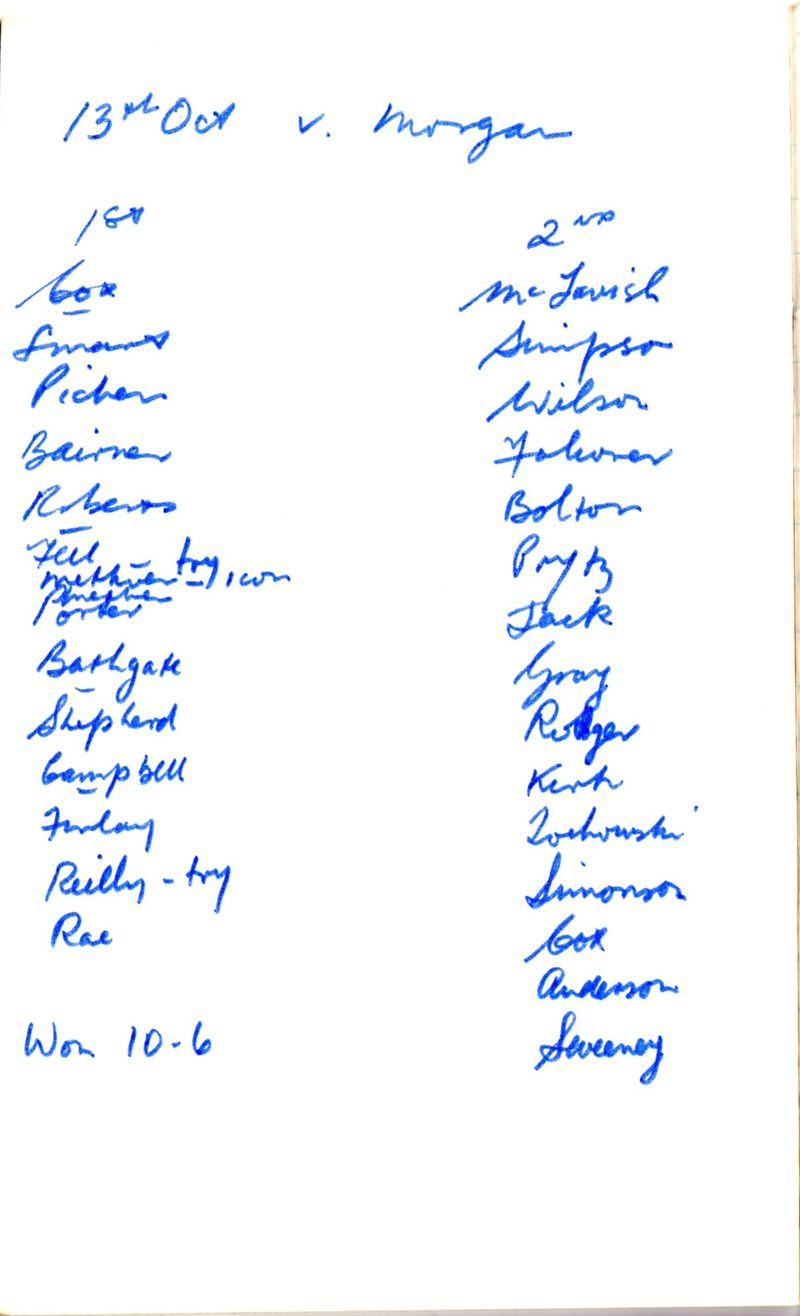 13th Oct v. Morgan
1st
Cox
Smart
Picken
Bairner
Roberts
Fell
Methven - try, 1 con
Porter
Bathgate
Shepherd
Campbell
Finlay
Reilly - try
Rae
Won 10-6
2nd
McTavish
Simpson
Wilson
Falconer
Bolton
Prytz
Jack
Gray
Rodger
Kirk
Zochowski
Simonson
Cox
Anderson
Sweeney